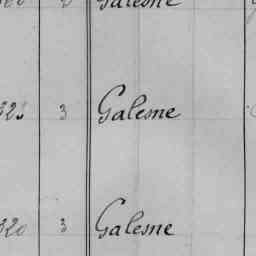 Galesne
3 Galesne
320 3 Galesne